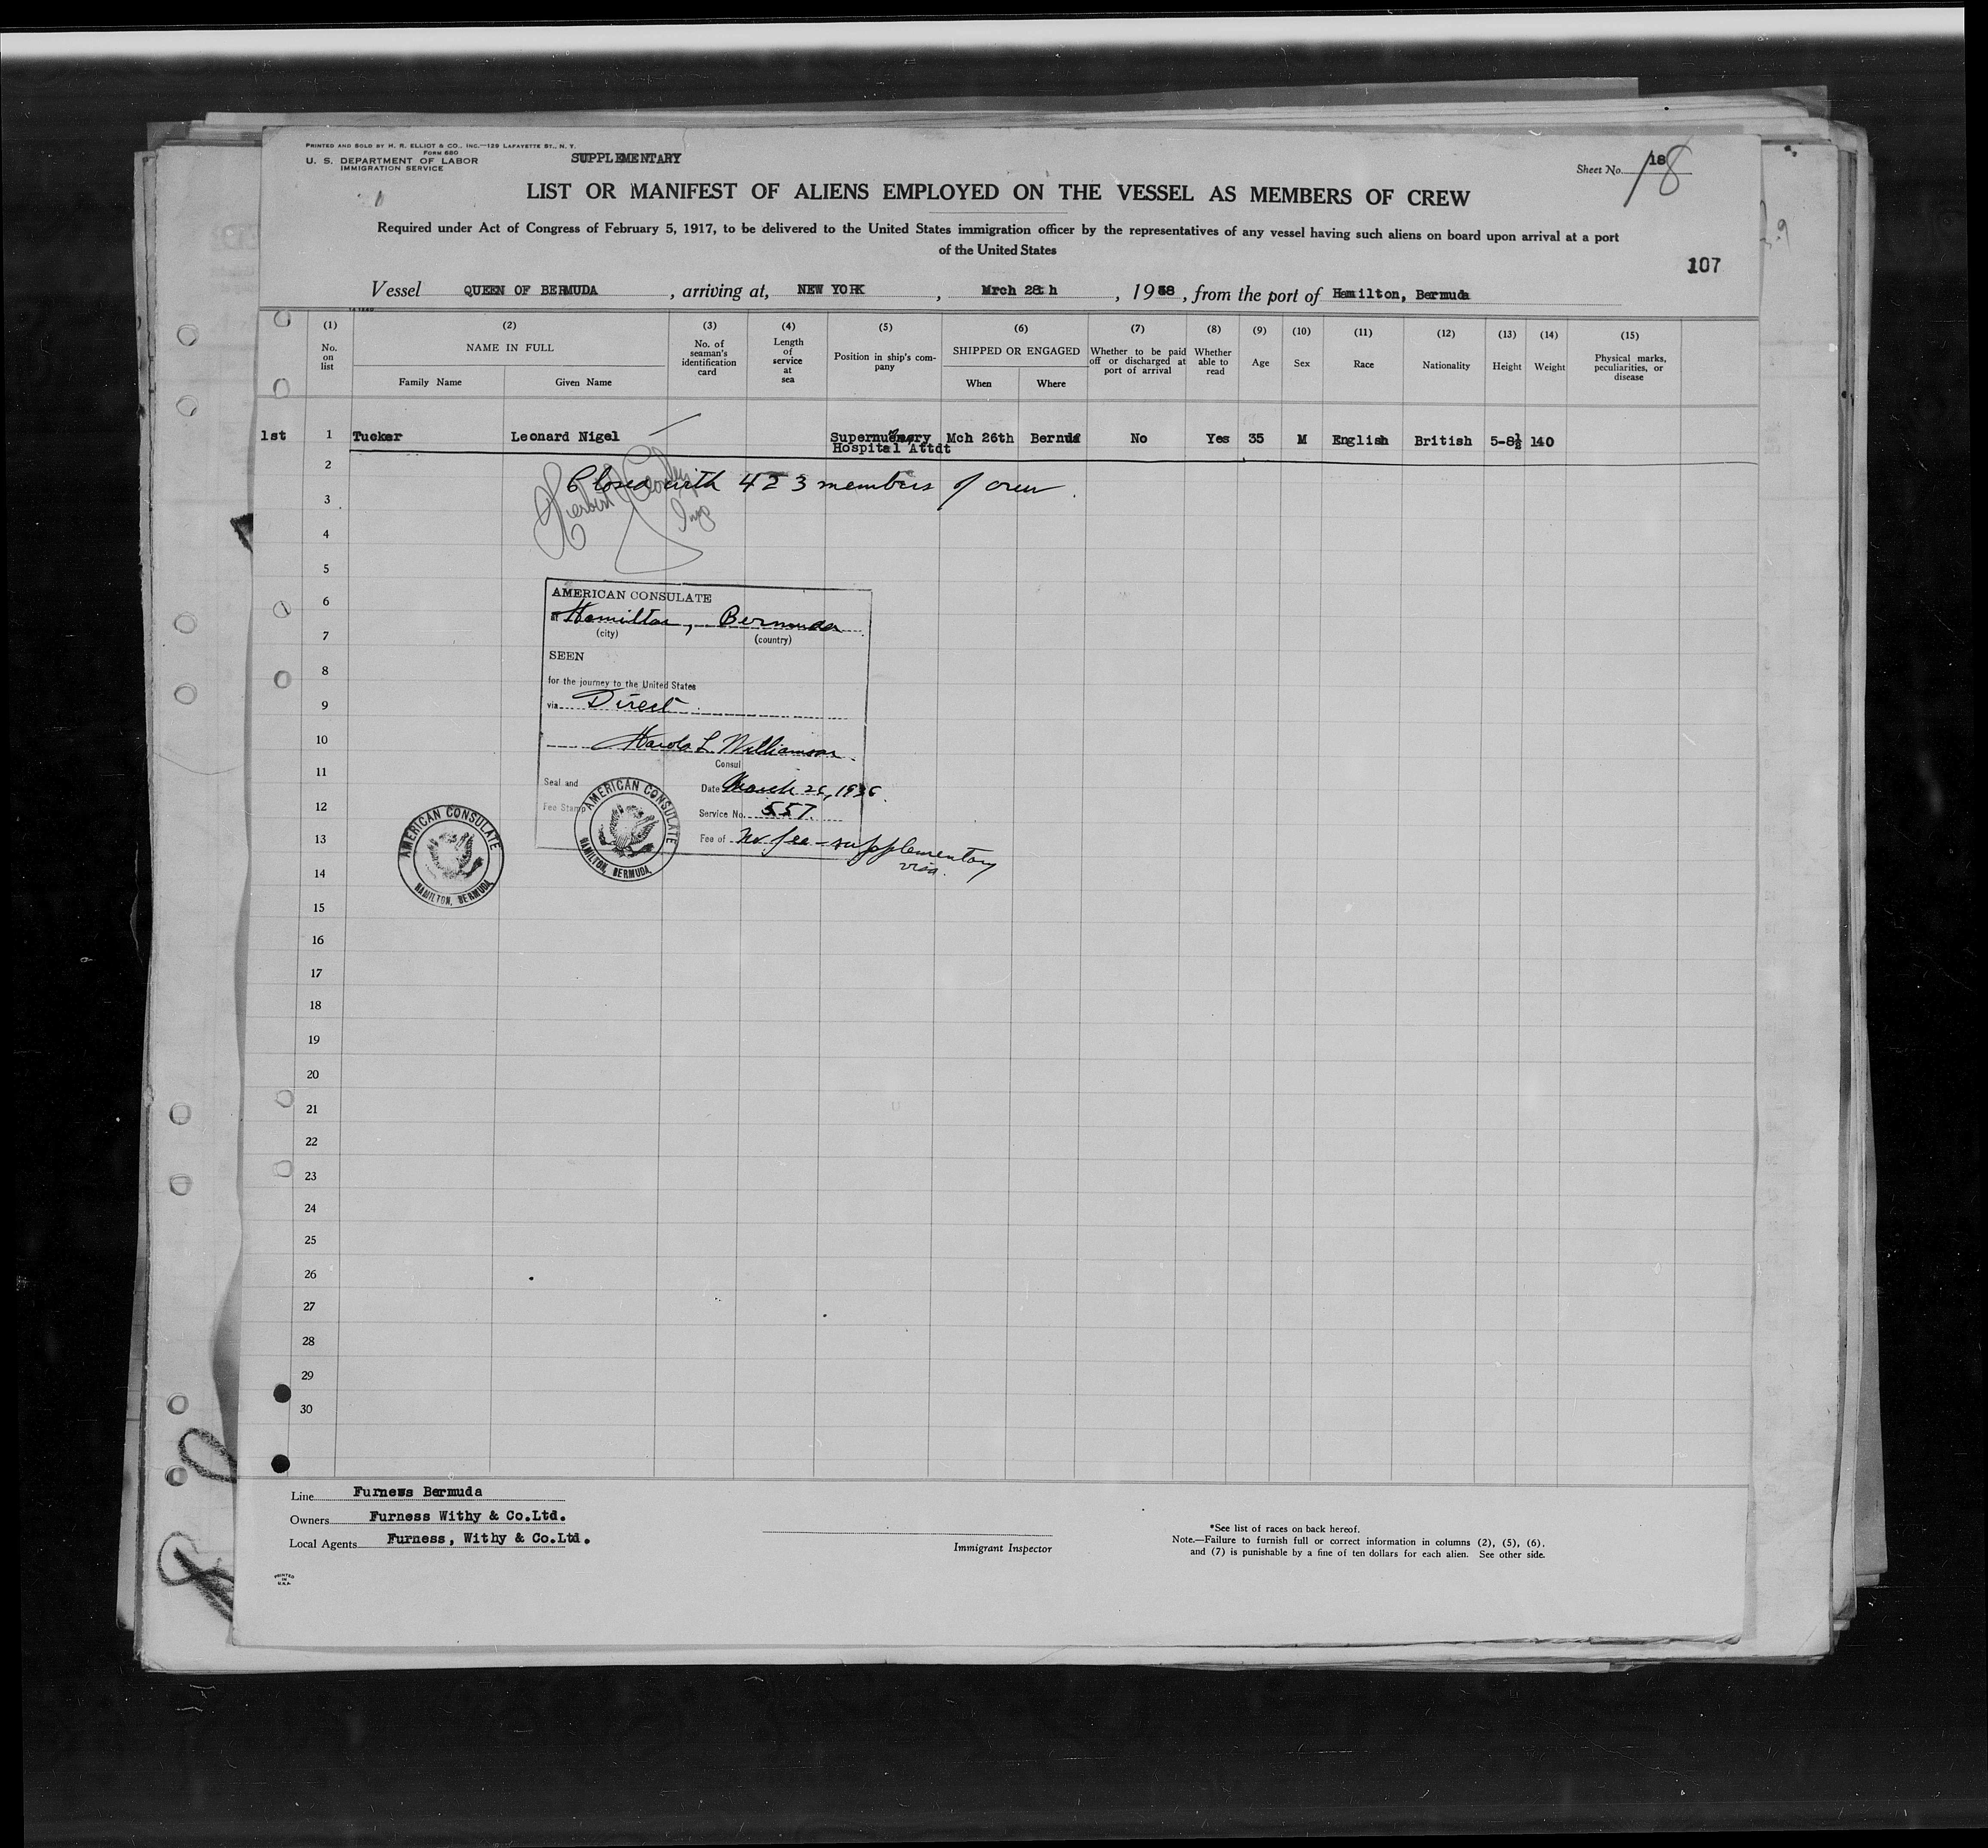 PRINTED AND SOLD BY H. R. ELLIOT & CO., INC.—129 LAFAYETTE ST., N. Y.
FORM 680
U. S. DEPARTMENT OF LABOR
IMMIGRATION SERVICE
SUPPLEMENTARY
Sheet No. 18
18
LIST OR MANIFEST OF ALIENS EMPLOYED ON THE VESSEL AS MEMBERS OF CREW
Required under Act of Congress of February 5, 1917, to be delivered to the United States immigration officer by the representatives of any vessel having such aliens on board upon arrival at a port
of the United States
107
Vessel QUEEN OF BERMUDA, arriving at, NEW YORK, Mrch 28th, 19, from the port of Hamilton, Bermuda
(1) (2) (3) (4) (5) (6) (7) (8) (9) (10) (11) (12) (13) (14) (15)
No. on list
NAME IN FULL
Family Name
Given Name
No. of seaman's identification card
Length of service at sea
Position in ship's company
SHIPPED OR ENGAGED
When
Where
Whether to be paid off or discharged at port of arrival
Whether able to read
Age
Sex
Race
Nationality
Height
Weight
Physical marks, peculiarities, or disease
1st 1 Tucker Leonard Nigel Supernumerary Mch 26th Bermuda No Yes 35 M English British 5-8½ 140
Hospital Attdt
2
Closed with 423 members of crew.
3
4
5
6
7
8
9
10
11
12
13
14
15
16
17
18
19
20
21
22
23
24
25
26
27
28
29
30
AMERICAN CONSULATE
at Hamilton, Bermuda
(city) (country)
SEEN
for the journey to the United States
via Direct
Harold L. Williamson
Consul
Seal and
Fee Stamp
Date March 26, 1936
Service No. 557
Fee of No fee - supplementary
visa.
AMERICAN CONSULATE
HAMILTON, BERMUDA
AMERICAN CONSULATE
HAMILTON, BERMUDA
Line Furness Bermuda
Owners Furness Withy & Co.Ltd.
Local Agents Furness, Withy & Co.Ltd.
Immigrant Inspector
*See list of races on back hereof.
Note.—Failure to furnish full or correct information in columns (2), (5), (6),
and (7) is punishable by a fine of ten dollars for each alien. See other side.
PRINTED
IN
U.S.A.